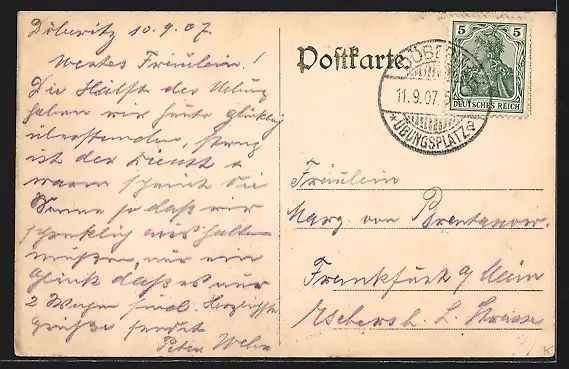 Döberitz 10.9.07.
Wertes Fräulein!
Die Hälfte der Übung
haben wir heute glücklich
überstanden, streng
ist der Dienst u
warm scheint die
Sonne so daß wir
schrecklich aushalten
müßen, nur ein
Glück daß es nur
2 Wochen sind. Herzlichste
Grüße sendet
Peter Weber
Postkarte
DÖBERITZ
11.9.07
*ÜBUNGSPLATZ
5 5
DEUTSCHES REICH
Fräulein
Marg. von
Frankfurt a/Main
Straße